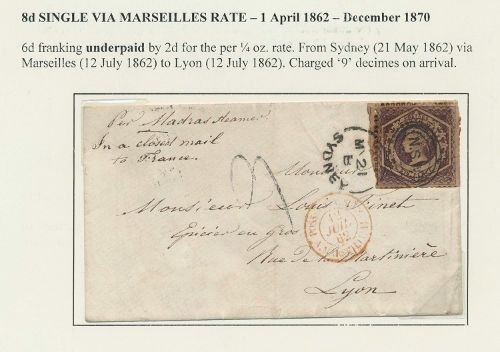 8d SINGLE VIA MARSEILLES RATE – 1 April 1862 – December 1870
6d franking underpaid by 2d for the per ¼ oz. rate. From Sydney (21 May 1862) via
Marseilles (12 July 1862) to Lyon (12 July 1862). Charged ‘9’ decimes on arrival.
Per Madras steamer
In a closed mail
to France.
SYDNEY
M-21
NS
Monsieur
Monsieur Louis Finet
Epicier en gros
Rue de la Martinière
Lyon